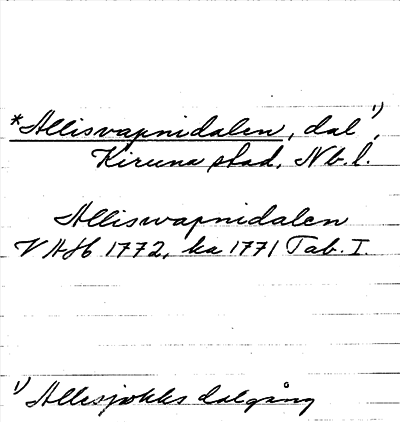 *Allisvapnidalen, dal 1),
Kiruna stad, Nb.l.
Alliswapnidalen
VAH 1772, ka 1771 Tab. I.
1) Allisjokks dalgång